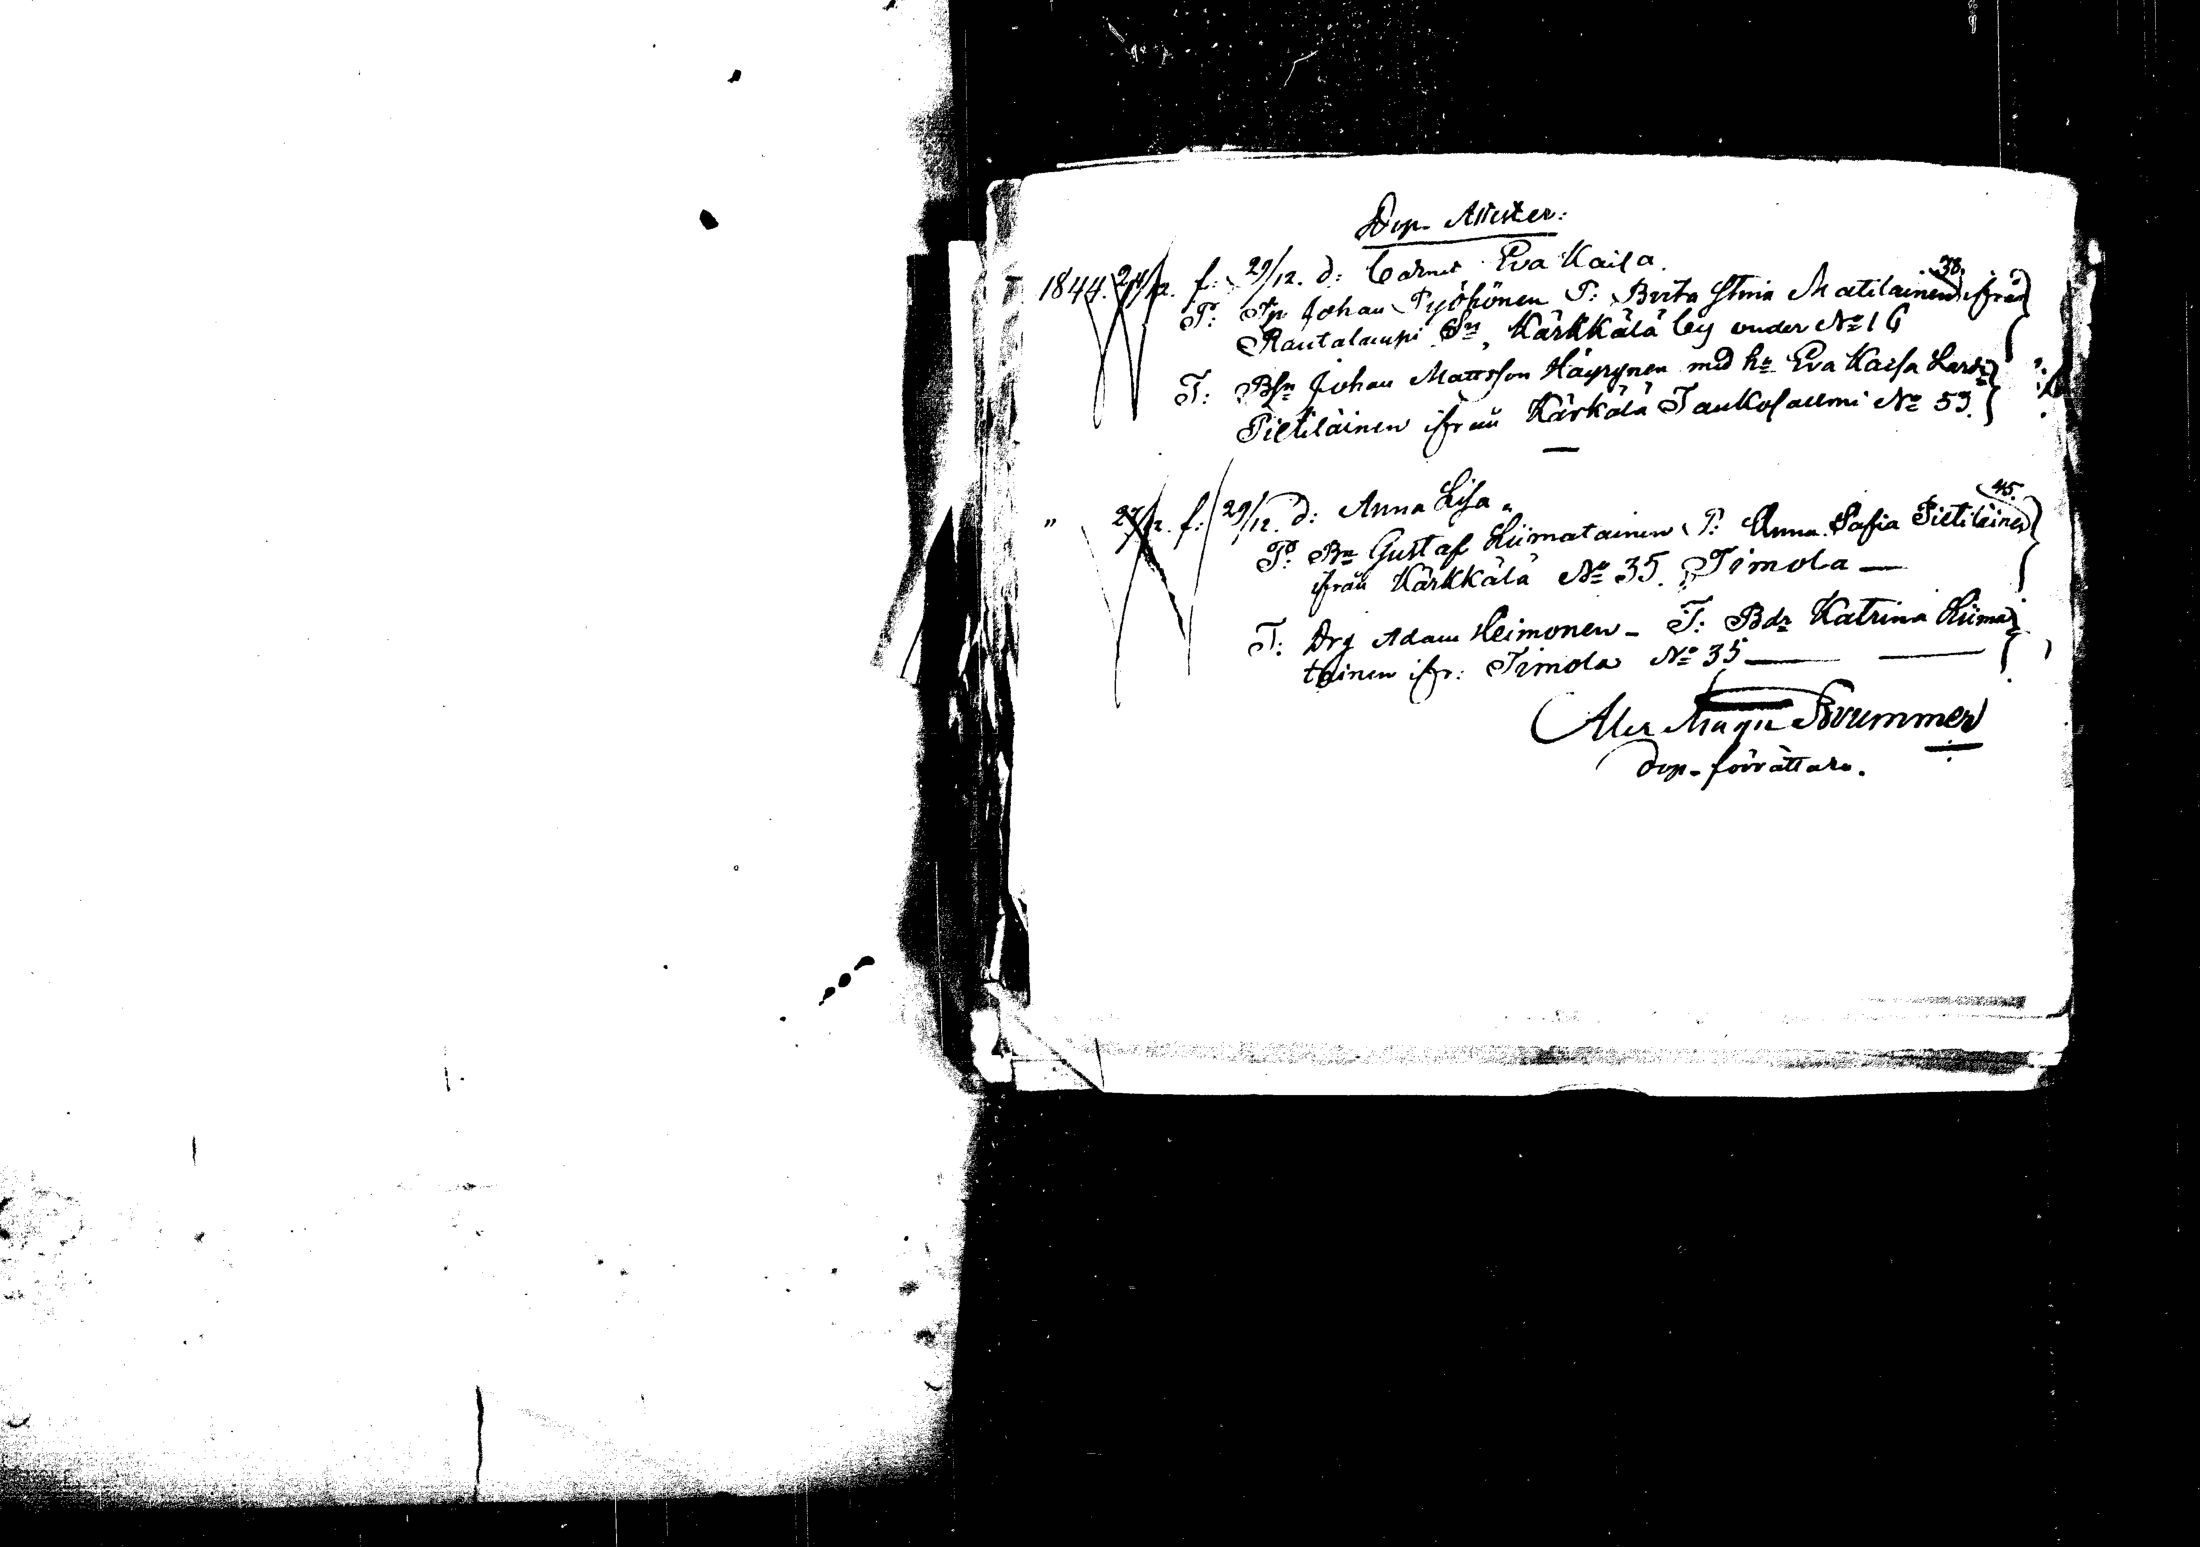 Dop-Attester:
1844. 24/12. f: 29/12. d: Barnet Eva Kaisa.
38.
F: Tp Johan Työhönen F: Brita Stina Matilainen ifrån
Rautalampi Sn, Kärkkälä by under No 16
T: Bsn Johan Mattsson Häyrynen med h: Eva Kaisa Larsdr
Pietiläinen ifrån Kärkälä Taukosalmi No 53.
" 27/12. f: 29/12. d: Anna Lisa
45.
F: Bn Gustaf Liimatainen F: Anna Sofia Pietiläinen
ifrån Kärkkälä No 35. Timola —
T: Drg Adam Heimonen - T: Bdr Katrina Liima-
tainen ifr: Timola No 35 — —
Alex Magn Brummer
Dop-förrättare.